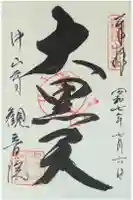 奉拝
令和七年七月六日
大黒天
中山寺
観音院